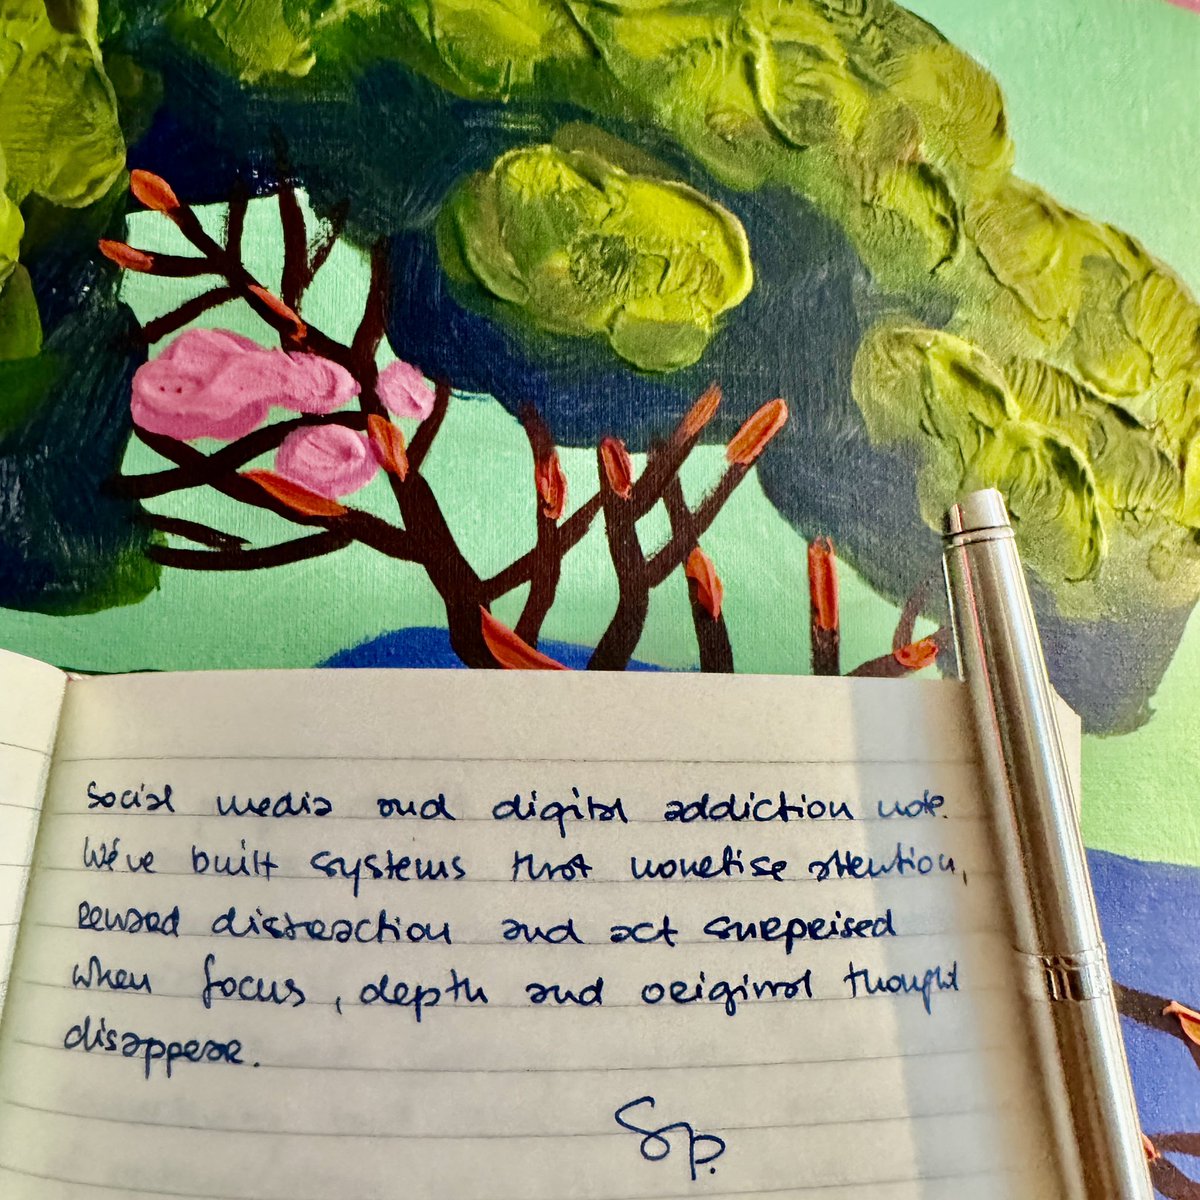 Social media and digital addiction note.
We've built systems that monetise attention,
reward distraction and act surprised
when focus, depth and original thought
disappear.
Sp.